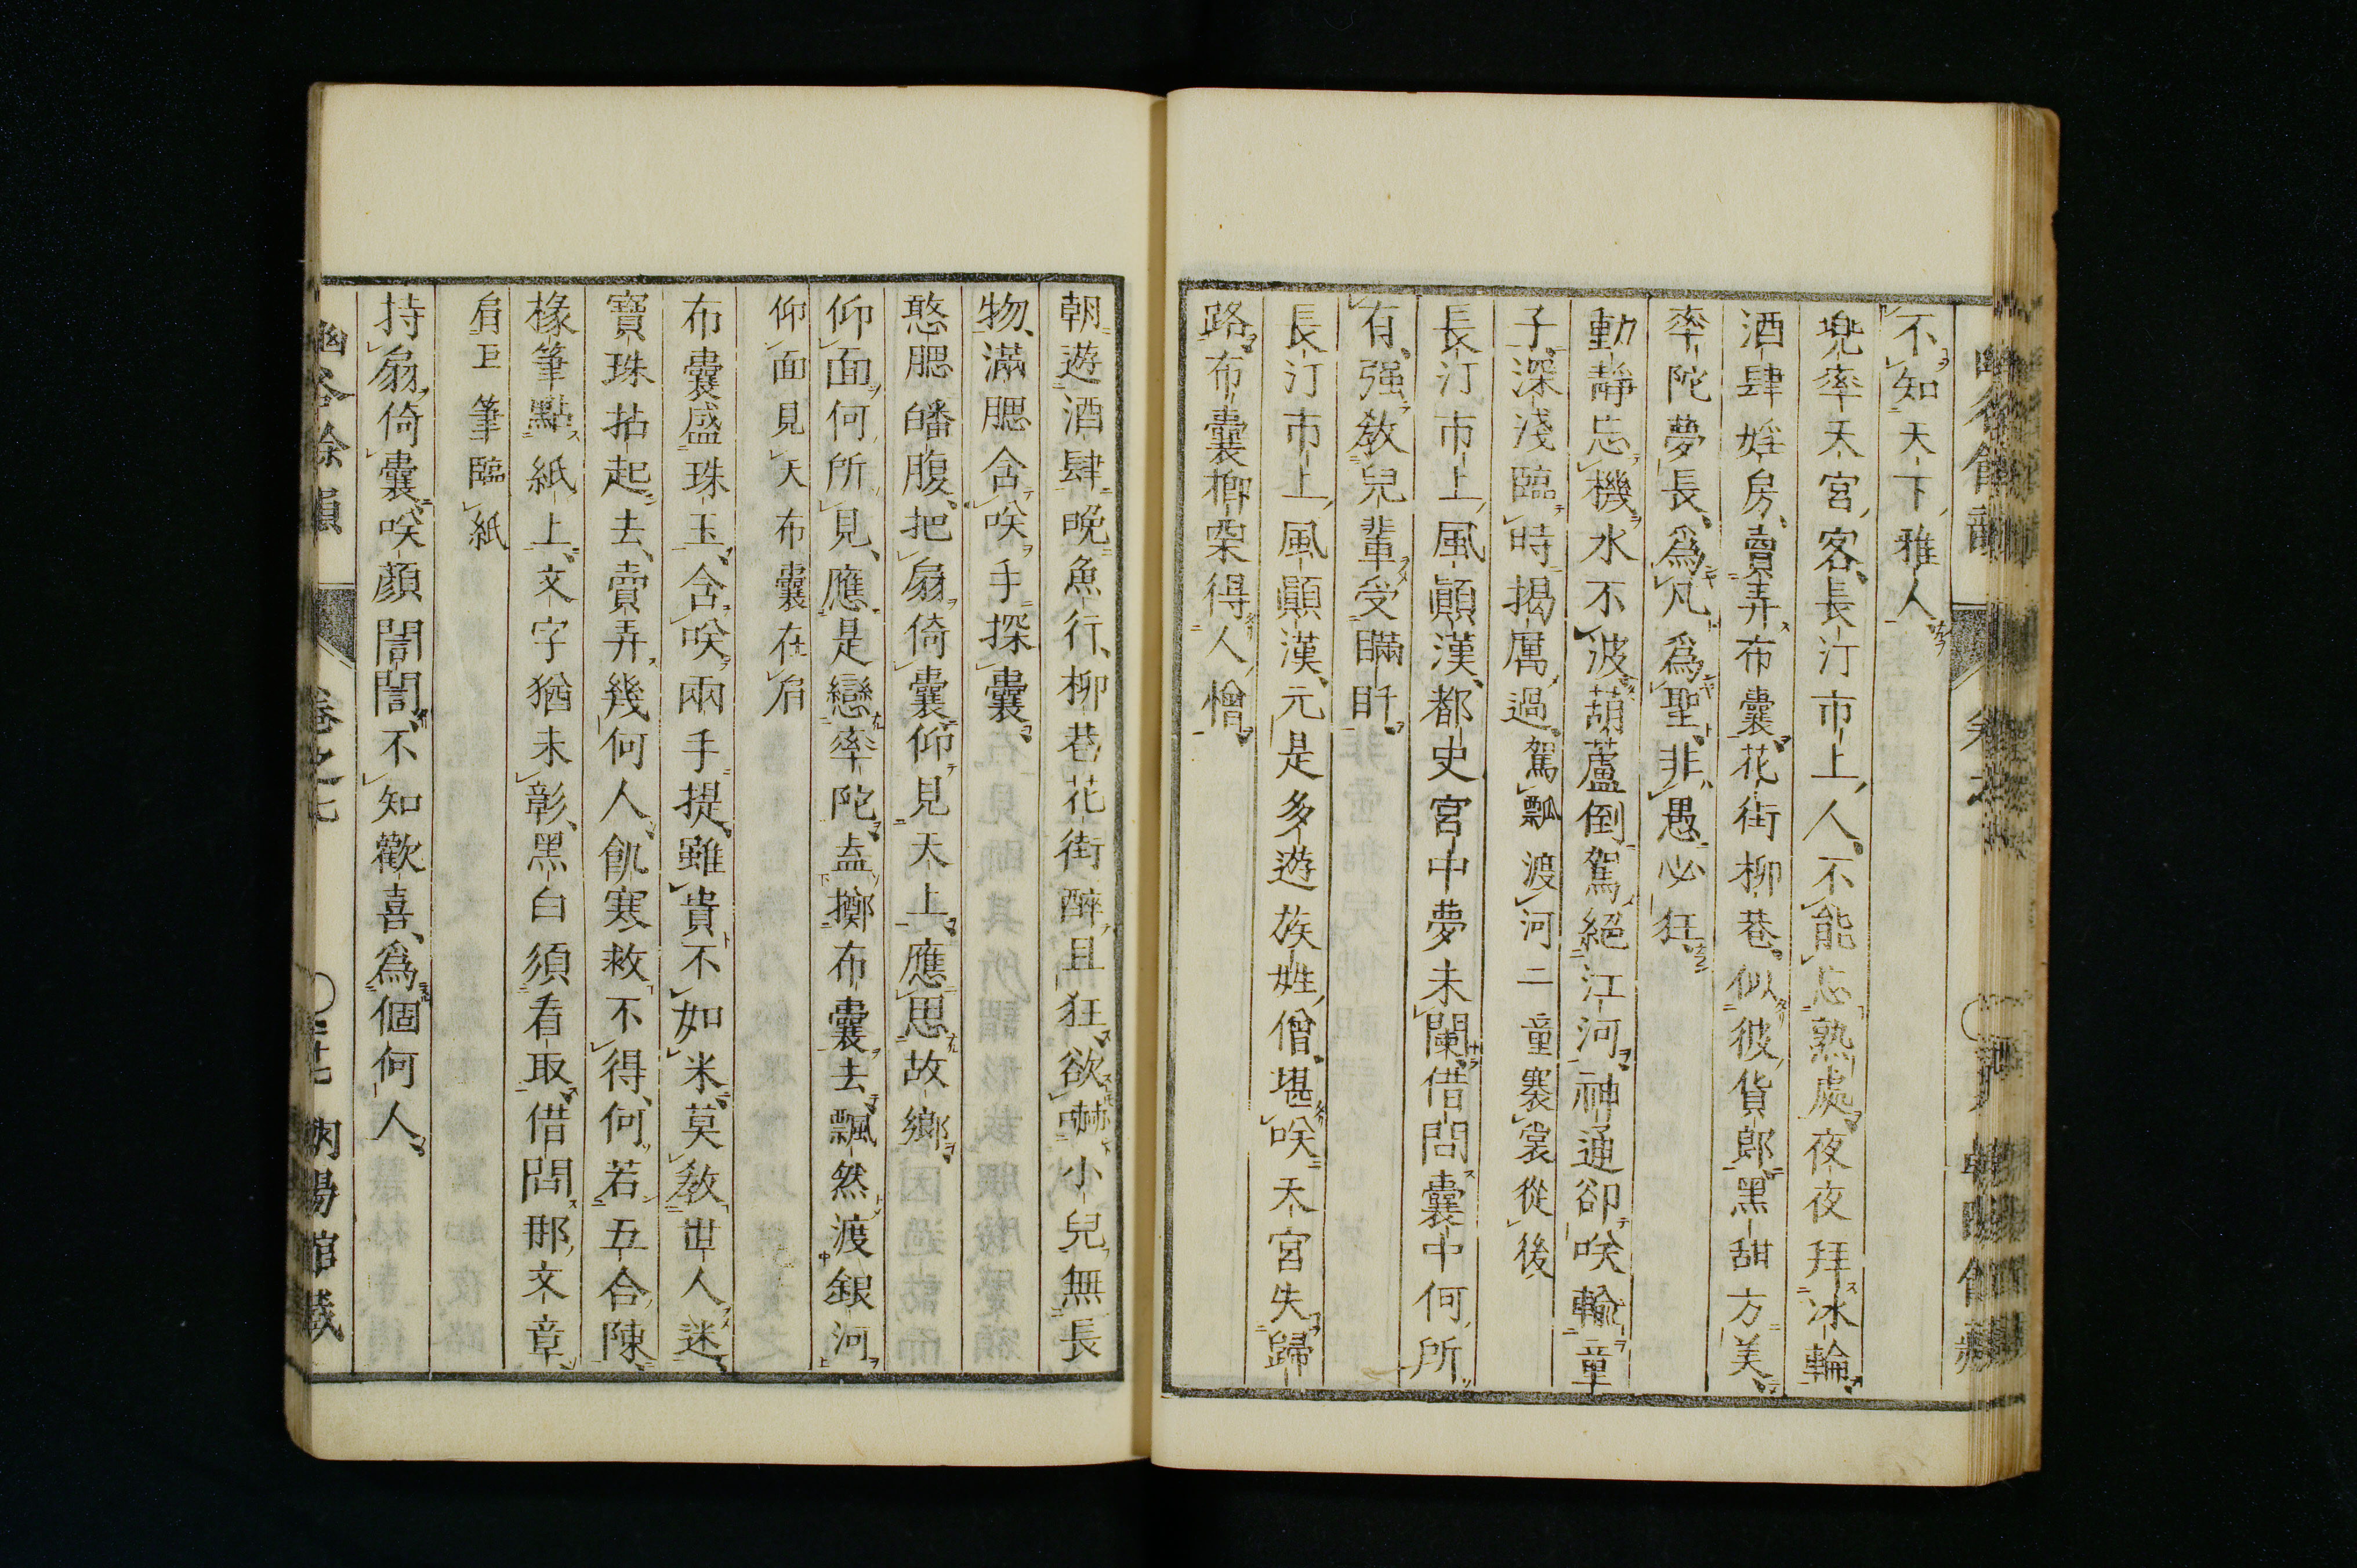 不知天下雅人
兜率天宮客長汀市上人不能忘熟處夜夜拜冰輪
酒肆婬房賣弄布囊花街柳巷似彼貨郎黑甜方美
率陀夢長爲凡爲聖非愚必狂
動靜忘機水不波葫蘆倒駕絕江河神通卻咲輪童
子深淺臨時揭厲過 駕瓢渡河二童褰裳從後
長汀市上風顚漢都史宮中夢未闌借問囊中何所
有强教兒輩受瞞盰
長汀市上風顚漢元是多遊族姓僧堪咲天宮失歸
路布囊擲架得人憎
朝遊酒肆晩魚行柳巷花街醉且狂欲嚇小兒無長
物滿腮含咲手探囊
憨腮皤腹把扇倚囊仰見天上應思故鄉
仰面何所見應是戀率陀盍擲布囊去飄然渡銀河
仰面見天布囊在肩
布囊盛珠玉含咲兩手提雖貴不如米莫教世人迷
寶珠拈起去賣弄幾何人飢寒救不得何若五合陳
椽筆點紙上文字猶未彰黑白須看取借問那文章
肩巨筆臨紙
持扇倚囊咲顏誾誾不知歡喜爲個何人
幽谷餘韻 卷之七 〇三十七  朝陽館藏